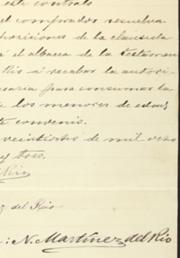 este contrato
el comprador resuelva
posiciones de la clausula
á el albacea de la testamen
Rio á recabar la autori
saria para consumar la
los menores de edad
te convenio.
veintiseis de mil ocho
y tres.
Rio
z del Rio
N. Martínez del Rio